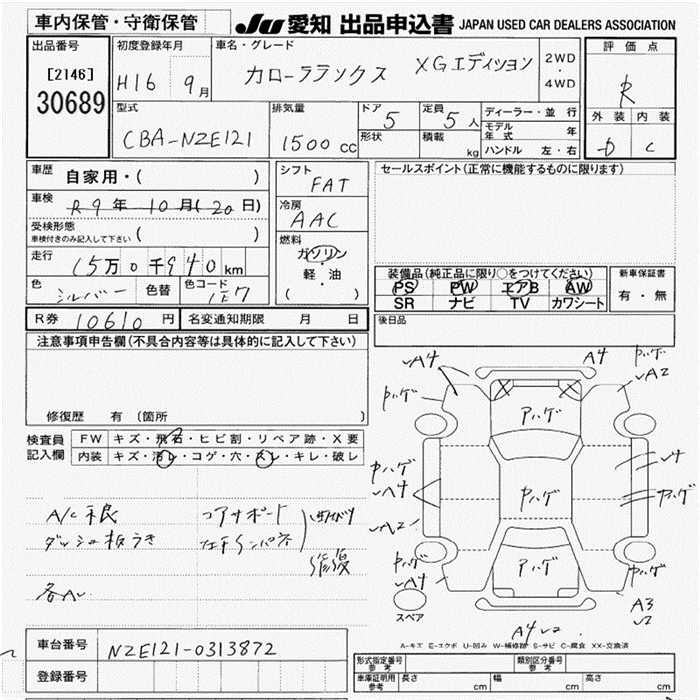 車内保管・守衛保管
JU 愛知 出品申込書 JAPAN USED CAR DEALERS ASSOCIATION
出品番号
[2146]
30689
初度登録年月
H16 9月
車名・グレード
カローラランクス XGエディション
2WD
・
4WD
評価点
R
外装 内装
D C
型式
CBA-NZE121
排気量
1500cc
ドア
5
形状
定員
5人
積載
kg
ディーラー・並行
モデル年式 年
ハンドル 左・右
車歴
自家用・( )
車検
R9年10月(20日)
受検形態
車検付きのみ記入して下さい ( )
走行
15万0千940km
色
シルバー
色替
色コード
1E7
シフト
FAT
冷房
AAC
燃料
ガソリン
・
軽・油
( )
セールスポイント(正常に機能するものに限ります)
装備品(純正品に限り○をつけてください)
PS PW エアB AW
SR ナビ TV カワシート
新車保証書
有・無
後日品
R券 10610円
名変通知期限 月 日
注意事項申告欄(不具合内容等は具体的に記入して下さい)
修復歴 有 [箇所 ]
検査員
記入欄
FW キズ・飛石・ヒビ割・リペア跡・X要
内装 キズ・汚レ・コゲ・穴・スレ・キレ・破レ
A/C不良
ダッシュ板うき
各Aレ
コアサポート
修復
レA4
A4
レA2
ハゲ
ハゲ
ハゲ
ハゲ
レA4
レA2
レ4
ハゲ
ハゲ
レA4
ハゲ
ハゲ
A3
レ2
A4レ2
スペア
A-キズ E-エクボ U-凹み W-補修跡 S-サビ C-腐食 XX-交換済
車台番号 NZE121-0313872
登録番号
形式指定番号
参考
類別区分番号
参考
車庫証明用
参考
長さ cm 幅 cm 高さ cm